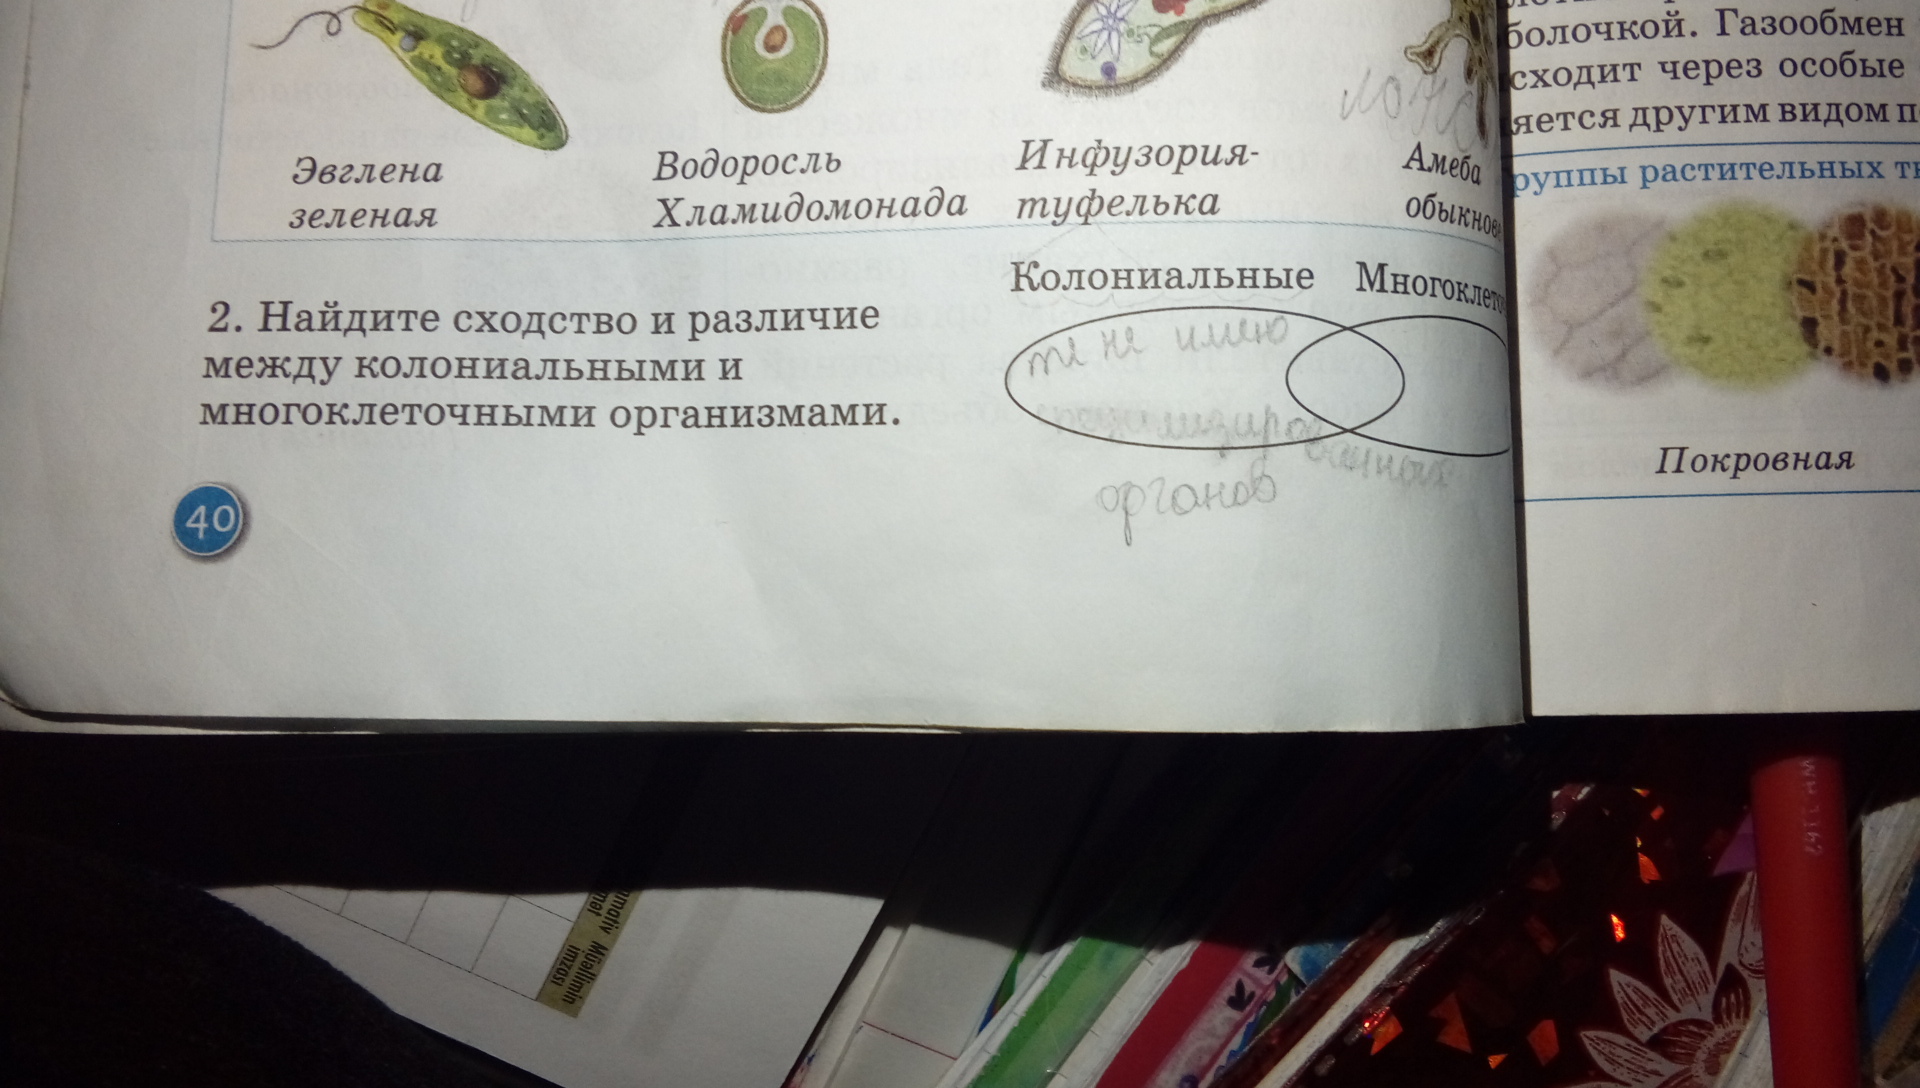 Эвглена
зеленая
Водоросль
Хламидомонада
Инфузория-
туфелька
Амеба
обыкнове
Колониальные Многоклето
2. Найдите сходство и различие
между колониальными и
многоклеточными организмами.
не имею
органов
40
болочкой. Газообмен
сходит через особые
яется другим видом п
руппы растительных тк
Покровная
Müəllimin
imzası